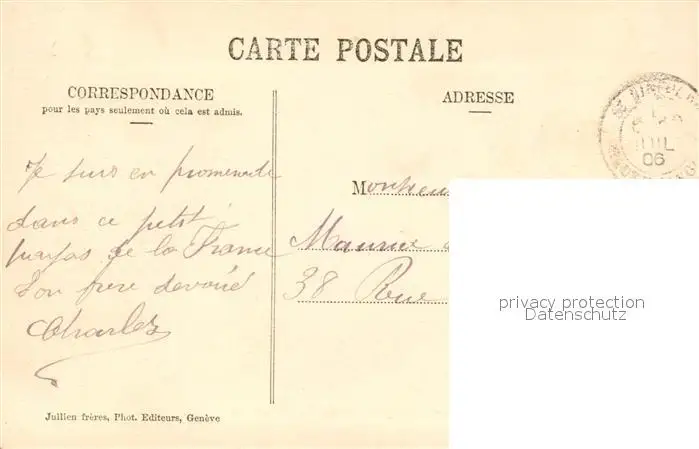 CARTE POSTALE
CORRESPONDANCE
pour les pays seulement où cela est admis.
ADRESSE
JUIL
06
Je suis en promenade
dans ce petit
de la France
Ton frère dévoué
Charles
Monsieur
Maurice
38 Rue
privacy protection
Datenschutz
Jullien frères, Phot. Editeurs, Genève